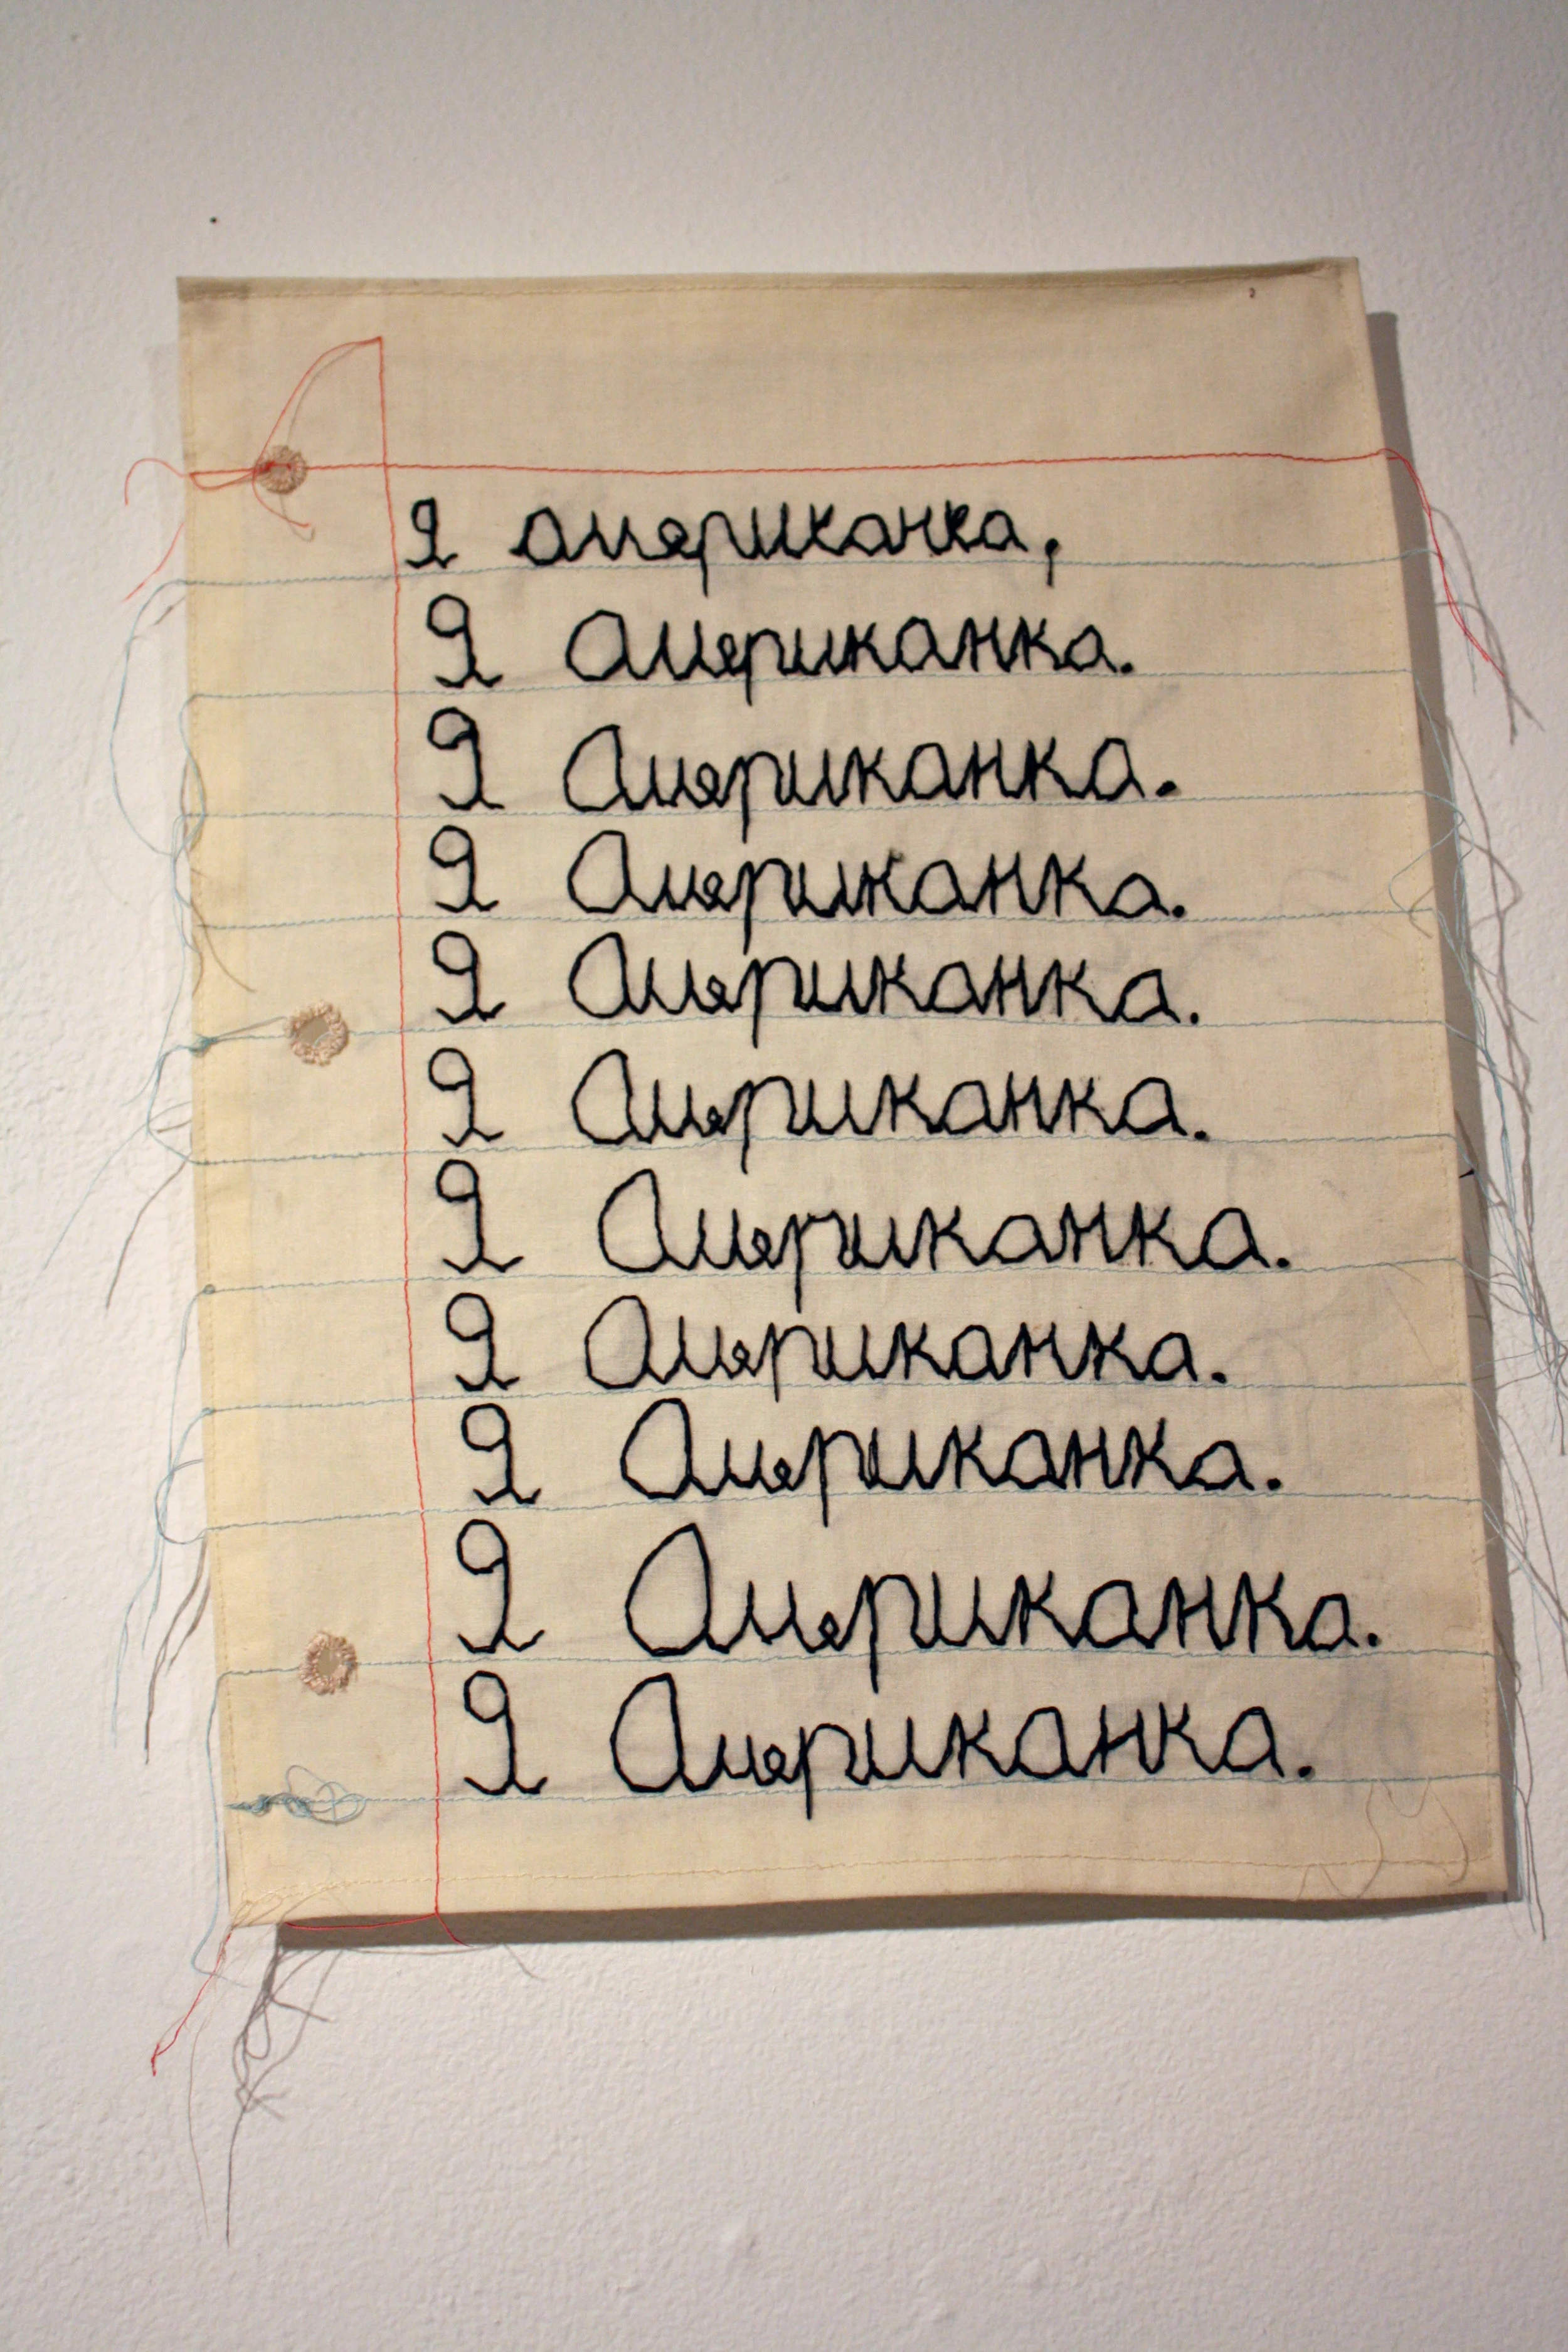 Я американка,
Я Американка.
Я Американка.
Я Американка.
Я Американка.
Я Американка.
Я Американка.
Я Американка.
Я Американка.
Я Американка.
Я Американка.